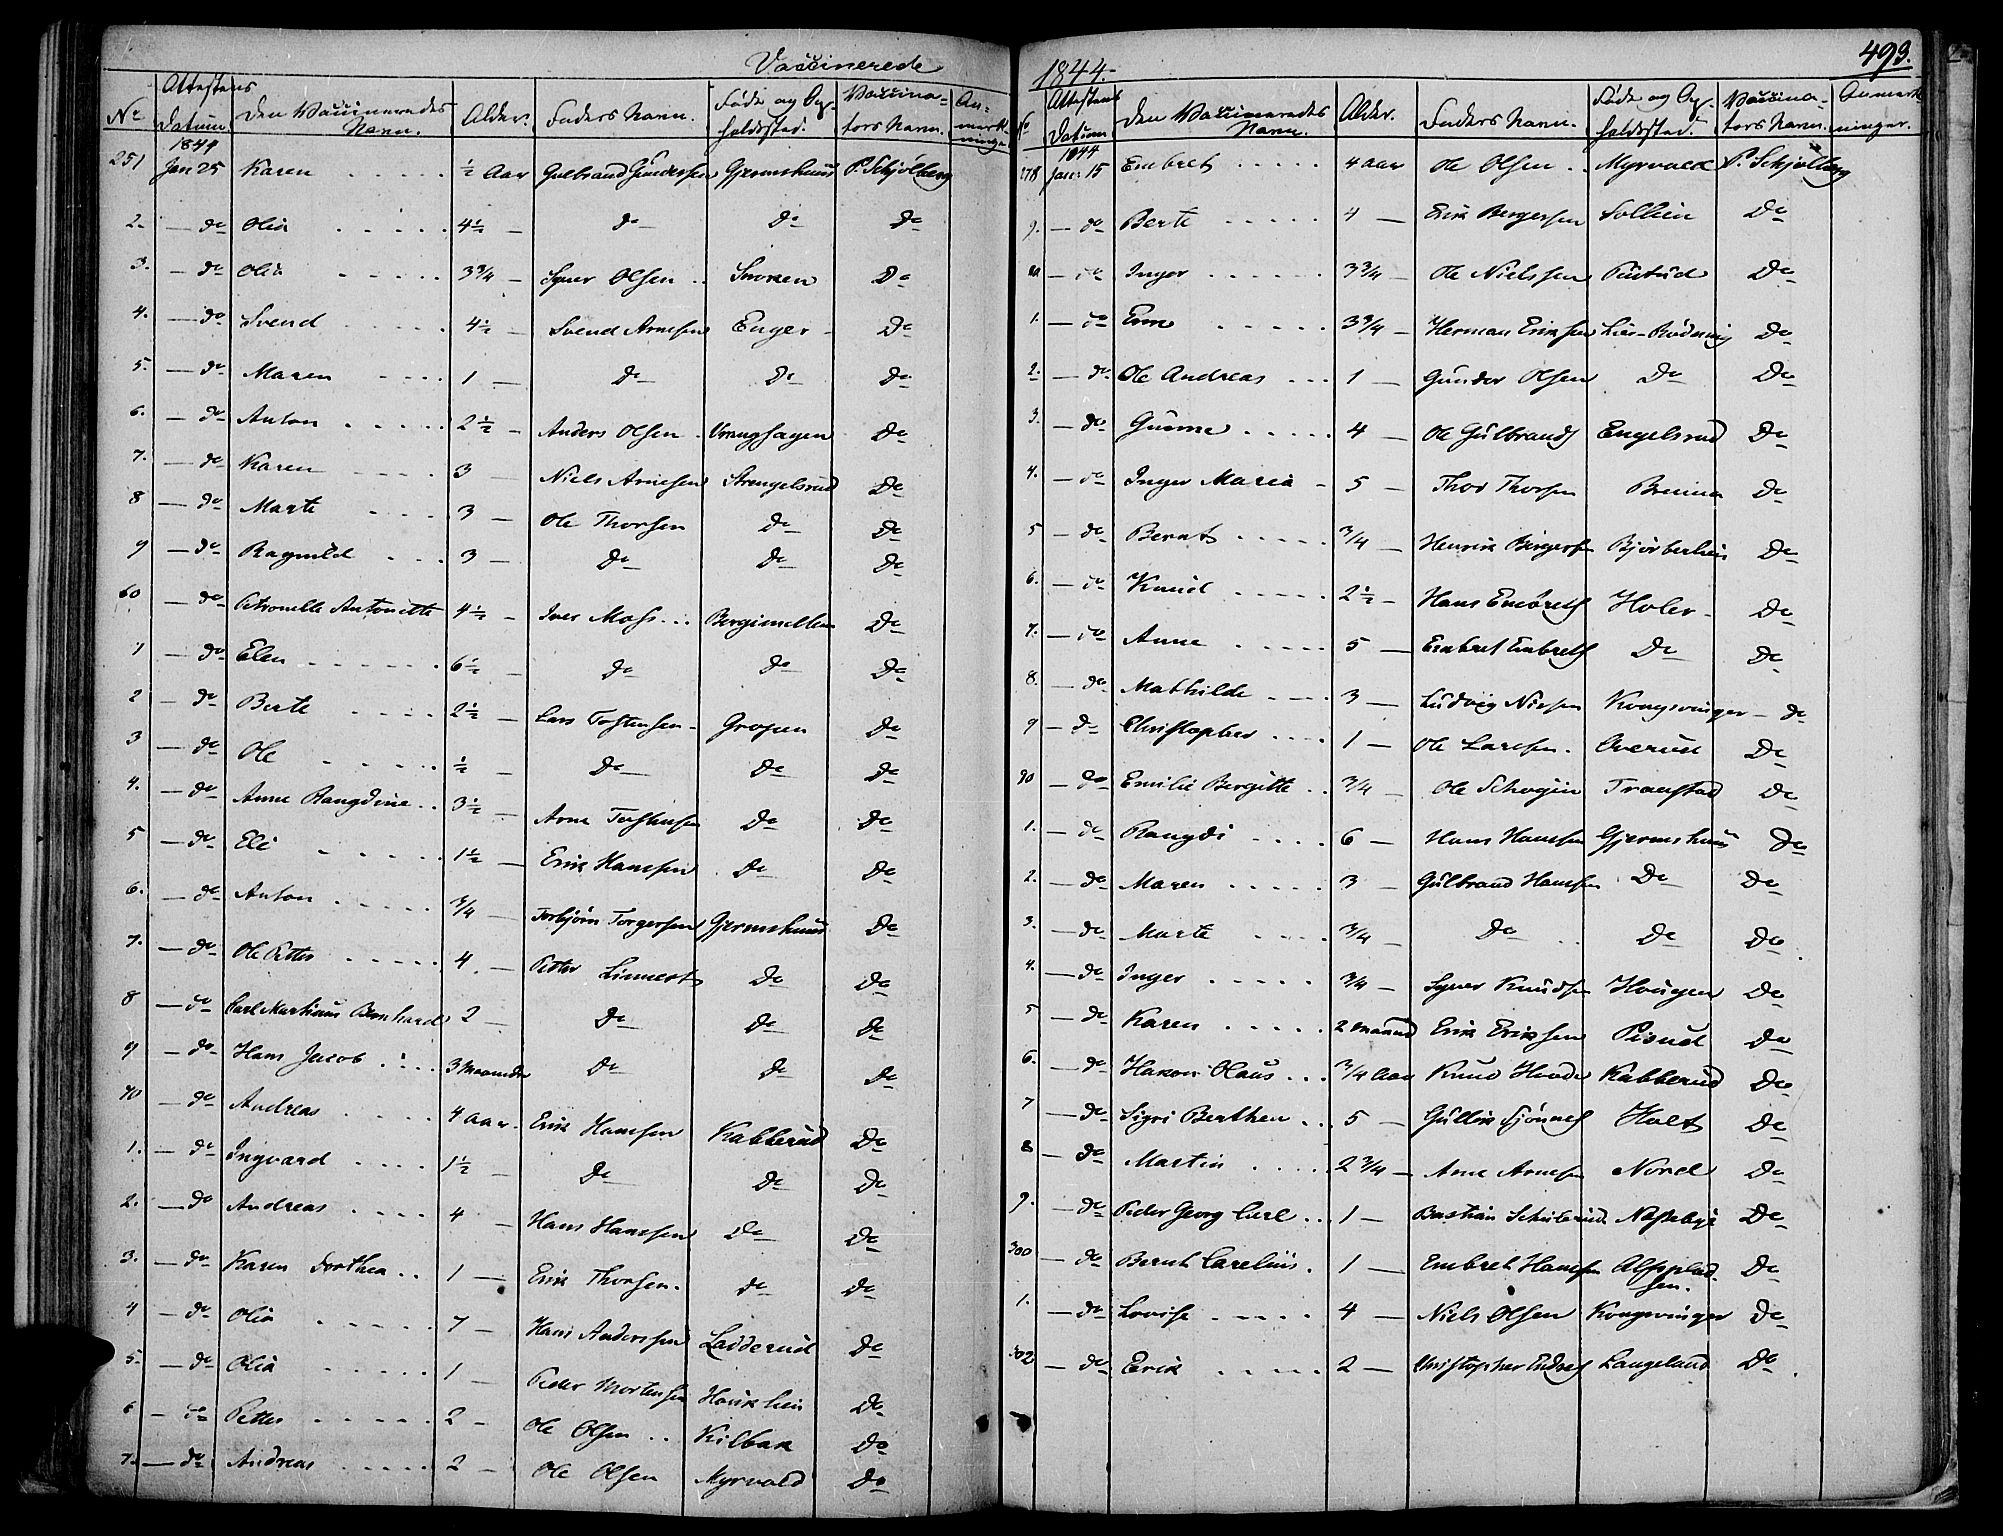 Vaccinerede
No Attestens Datum Den Vaccineredes Navn. Alder. Faders Navn. Føde og Op-holdssted. Vaccina-tors Navn. An-mærk-ninger
1844
251 Jan 25 Karen ½ Aar Gulbrand Gundersen Gjermshuus P. Schjølberg
2. — do Olia 4½ — do do Do
3. — do Olia 3¾ — Syver Olsen Snoken Do
4. — do Svend 4½ — Svend Arnesen Enger Do
5. — do Maren 1 — Do Do Do
6. — do Anton 2½ — Anders Olsen Vranghagen Do
7. — do Karen 3 — Niels Arnesen Strengelsrud Do
8 — do Marte 3 — Ole Thorsen Do Do
9 — do Ragnild 3 — Do Do Do
60 — do Petronelle Antonette 4½ — Iver Moss Bergimellem Do
1 — do Elen 6½ — do do Do
2 — do Berte 2½ — Lars Tostensen Gropen Do
3 — do Ole ½ — Do Do Do
4. — do Anne Rangdine 3½ — Arne Tostensen Do Do
5 — do Eli 1½ — Erik Hansen Do Do
6. — do Anton ¾ — Torbjørn Torgersen Gjermshuus Do
7. — do Ole Petter 4 — Petter Linnert Do Do
8 — do Carl Martinus Bernhard 2 — Do Do Do
9 — do Hans Jacob 3 Maaneder Do Do Do
70 — do Andreas 4 Aar. Erik Hansen Kabberud Do
1. — do Ingvard 1½ — Do Do Do
2. — do Andreas 4 — Hans Hansen Do Do
3. — do Karen Dorthea 1 — Erik Thorsen. Do Do
4 — do Olia 7 — Hans Anderssen Ladderud Do
5. — do Olia 1 — Peder Mortensen Do
6 — do Petter 2 — Ole Olsen Kilbak Do
7. — do Andreas 2 — Ole Olsen Myrvold Do
1844. 493.
No Attestens Datum Den Vaccineredes Navn. Alder. Faders Navn. Føde og Op-holdssted. Vaccina-tors Navn. Anmærk-ninger.
1844
278 Jan: 15 Embret 4 Aar Ole Olsen Myrvold P. Schjølberg
9. — do Berte 4 — Erik Bergersen Sollien Do
80 — do Inger 3¾ — Ole Nielssen Do
1. — do 3¾ — Herman Eriksen Lier-Rødning Do
2. — do Ole Andreas 1 — Gunder Olsen Do Do
3. — do Gunne 4 — Ole Gulbrands Engelsrud Do
4. — do Inger Maria 5 — Thor Thorsen Do
5 — do Bernt ¾ — Henrik Birgersen Do
6. — do Knud 2½ — Hans Embrets Holer Do
7. — do Anne 5 — Embret Embrets Do Do
8. — do Mathilde 3 — Ludvig Kongsvinger — do
9 — do Christopher 1 — Ole Larssen Overud Do
90 — do Emilie Bergitte ¾ — Ole Schøgin Transtad Do
1. — do Rangdi 6 — Hans Hansen Gjermshuus Do
2. — do Maren 3 — Gulbrand Hansen Do Do
3. — do Marte ¾ — Do Do Do
4. — do Inger ¾ — Syver Knudsen Haugen Do
5 — do Karen 2 Maaned Erik Eriksen Pisud Do
6. — do Hakon Olaus ¾ Aar Knud Kabberud Do
7 — do Sigri Berthea 5 — Gullik Holt Do
8 — do Martin 2¾ — Arne Arnesen Nord Do
9. — do Peder Georg Carl 1 — Bastian Schulerud Næssebye Do
300 — do Bernt Carelius. 1 — Embret Hansen Alfsplad-sen. Do
1. — do Lovise 4 — Niels Olsen Kongsvinger Do
302 — do Erik 2 — Christopher Endres Langeland Do